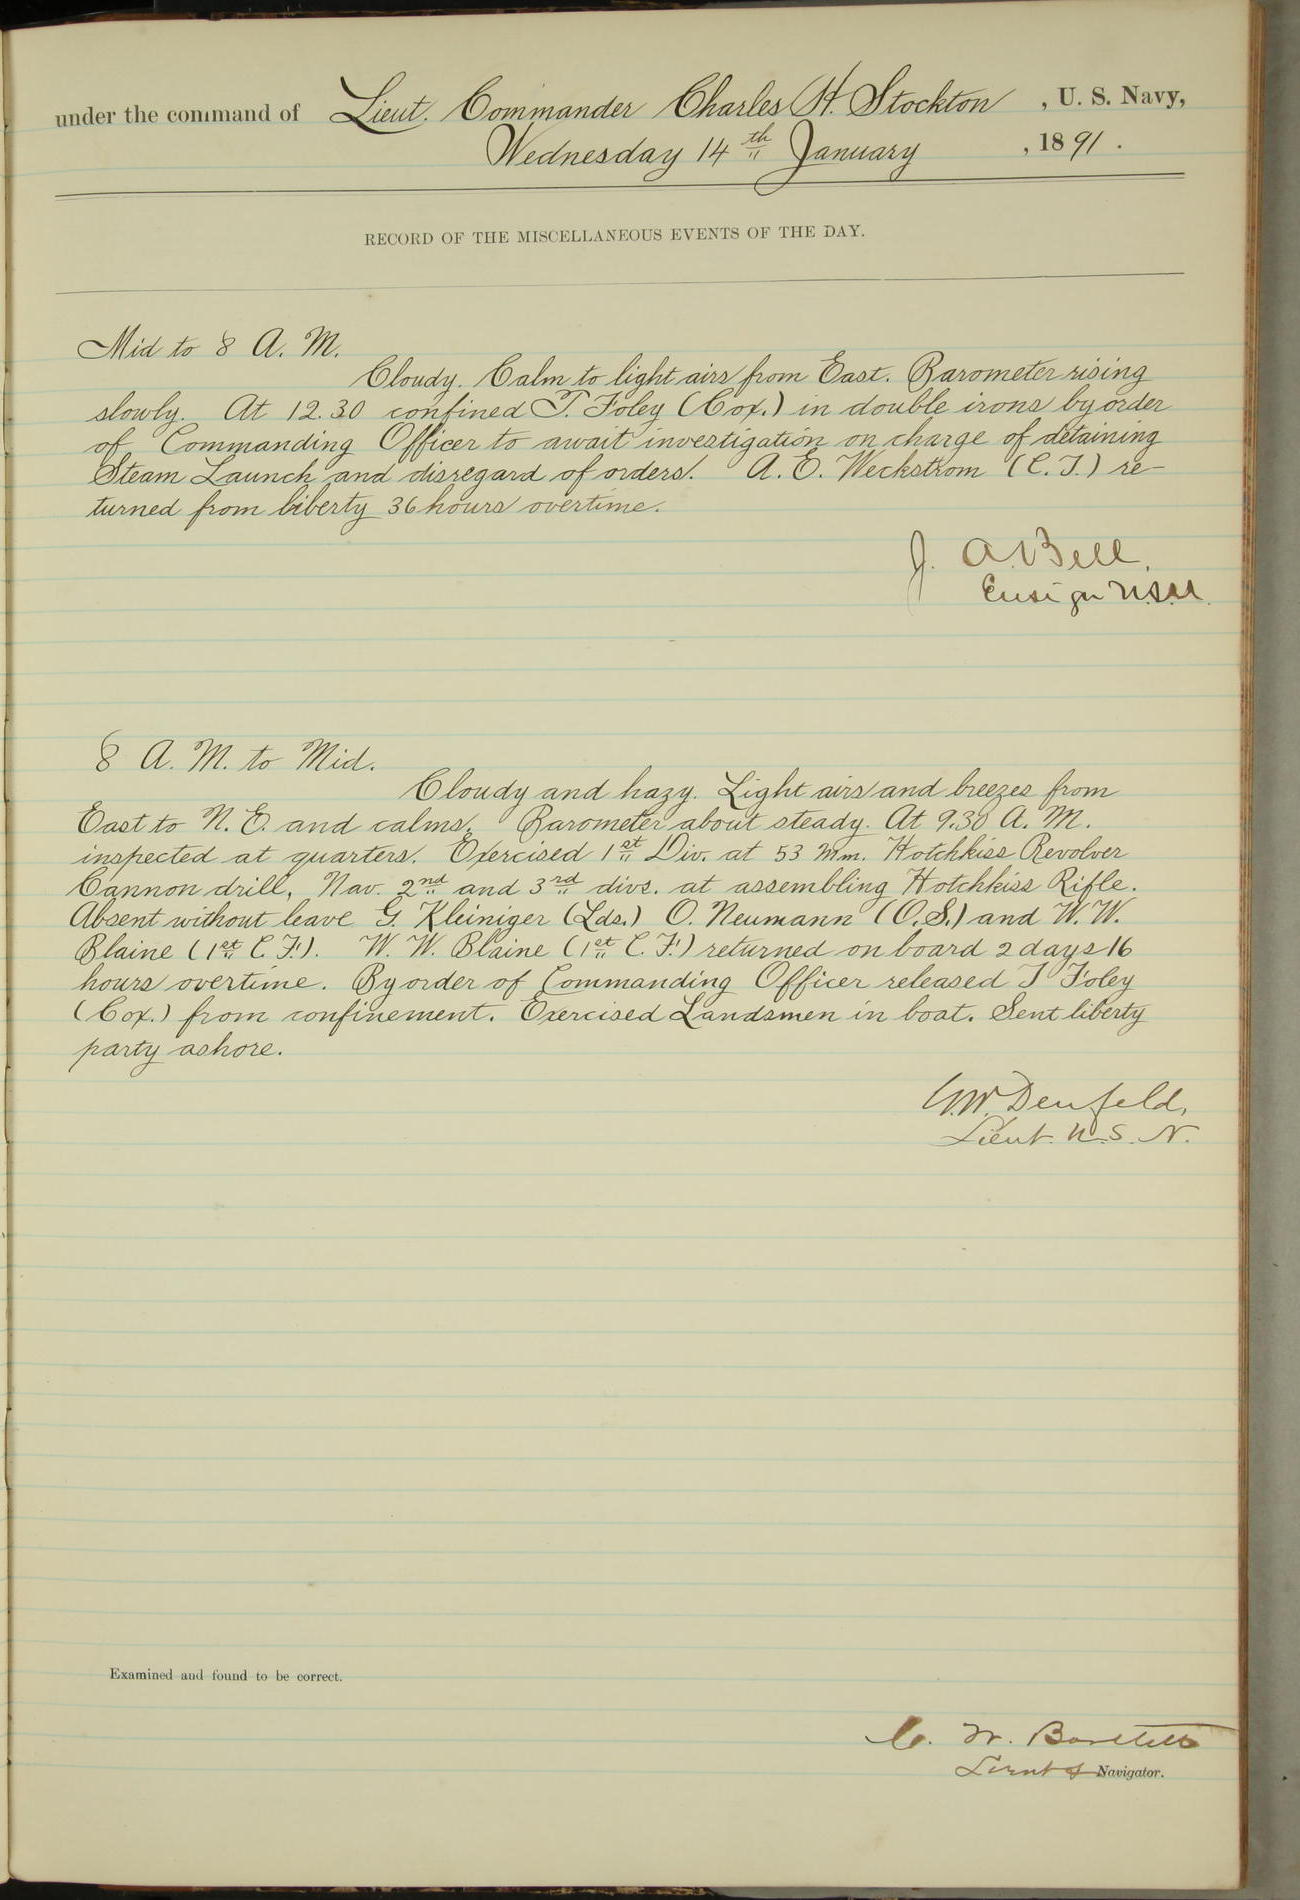 under the command of Lieut. Commander Charles H. Stockton, U. S. Navy,
Wednesday 14th January, 1891.
RECORD OF THE MISCELLANEOUS EVENTS OF THE DAY.
Mid to 8 A. M.
Cloudy. Calm to light airs from East. Barometer rising
slowly. At 12.30 confined T. Foley (Cox.) in double irons by order
of Commanding Officer to await investigation on charge of detaining
Steam Launch and disregard of orders. A. E. Weckstrom (C. T.) re-
turned from liberty 36 hours overtime.
J. A. Bell,
Ensign U.S.N.
8 A. M. to Mid.
Cloudy and hazy. Light airs and breezes from
East to N. E. and calms. Barometer about steady. At 9.30 A. M.
inspected at quarters. Exercised 1st Div. at 53 mm. Hotchkiss Revolver
Cannon drill, Nav. 2nd and 3rd divs. at assembling Hotchkiss Rifle.
Absent without leave G. Kleiniger (Lds.) O. Neumann (O.S.) and W. W.
Blaine (1st C. F.). W. W. Blaine (1st C. F.) returned on board 2 days 16
hours overtime. By order of Commanding Officer released T Foley
(Cox.) from confinement. Exercised Landsmen in boat. Sent liberty
party ashore.
G.W. Denfeld,
Lieut. U. S. N.
Examined and found to be correct.
C. W. Bartlett
Lieut & Navigator.